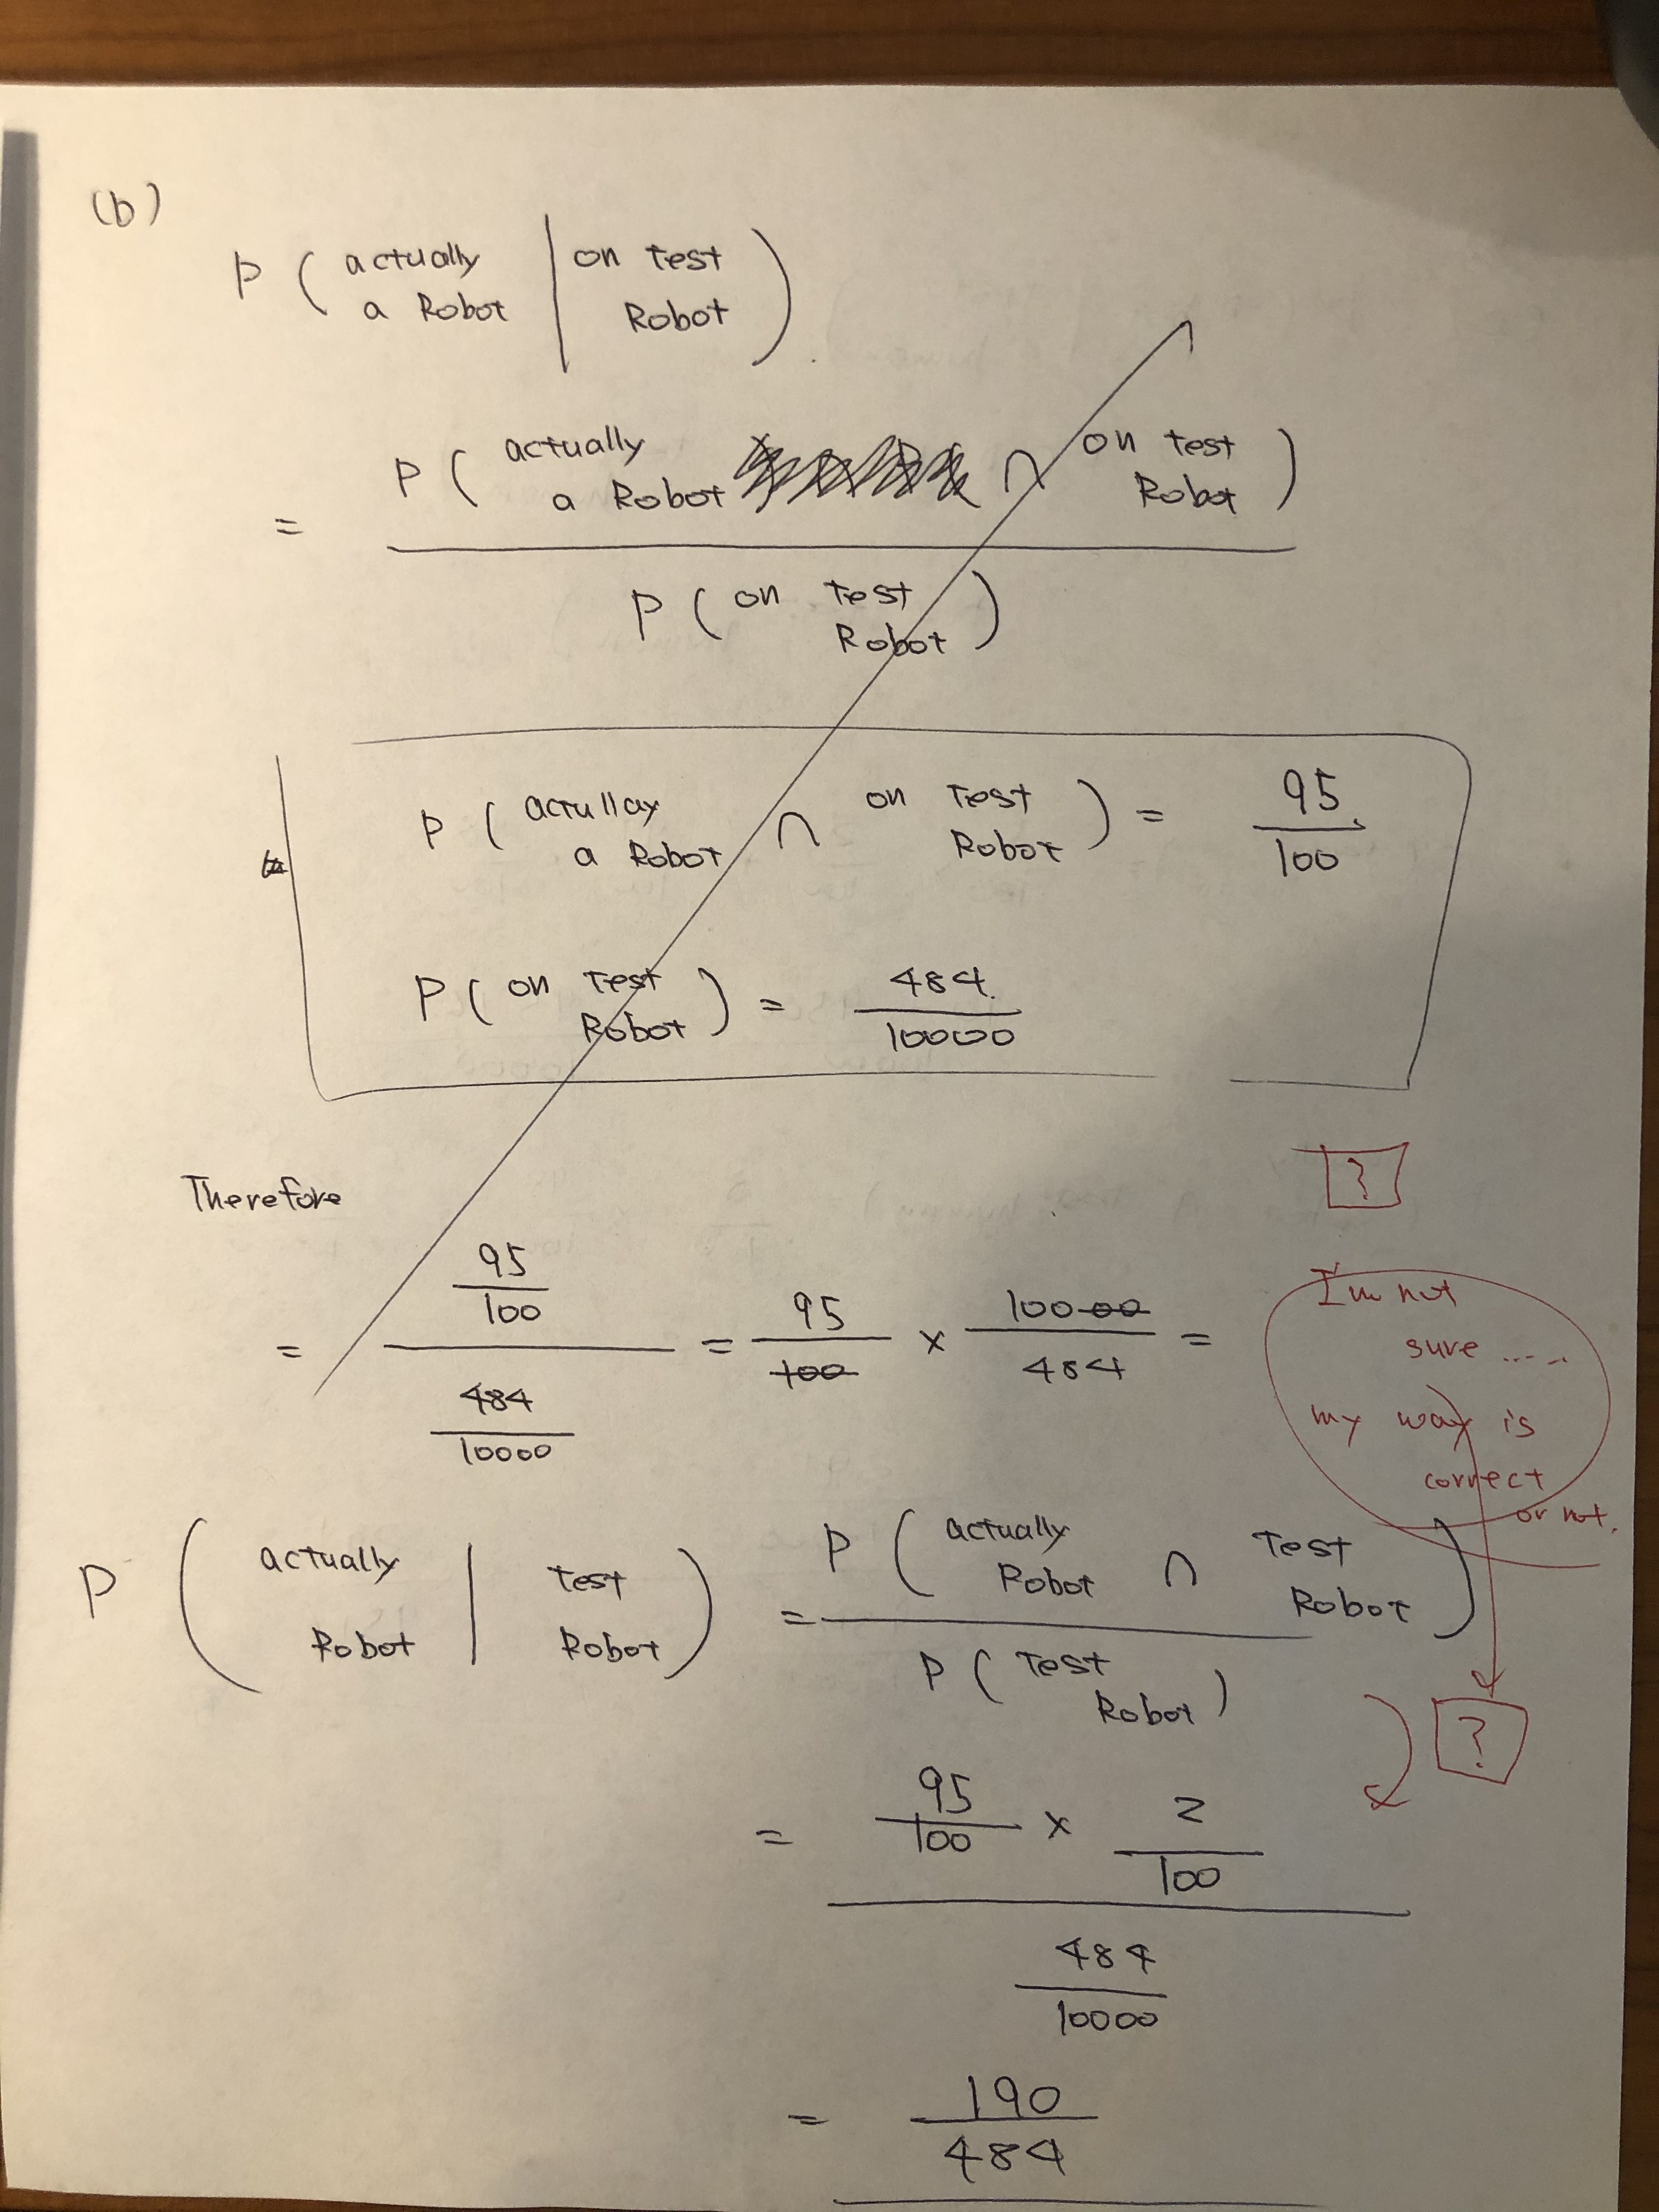 (b)
P ( actually a Robot | on Test Robot ) .
= P ( actually a Robot ∩ on Test Robot ) / P ( on Test Robot )
P ( actullay a Robot ∩ on Test Robot ) = 95/100
P ( on Test Robot ) = 484/10000
?
Therefore
= 95/100 / 484/10000 = 95/100 × 10000/484 =
I'm not
sure .....
my way is
correct
or not.
P ( actually Robot | Test Robot ) = P ( actually Robot ∩ Test Robot ) / P ( Test Robot )
?
= 95/100 × 2/100 / 484/10000
= 190/484